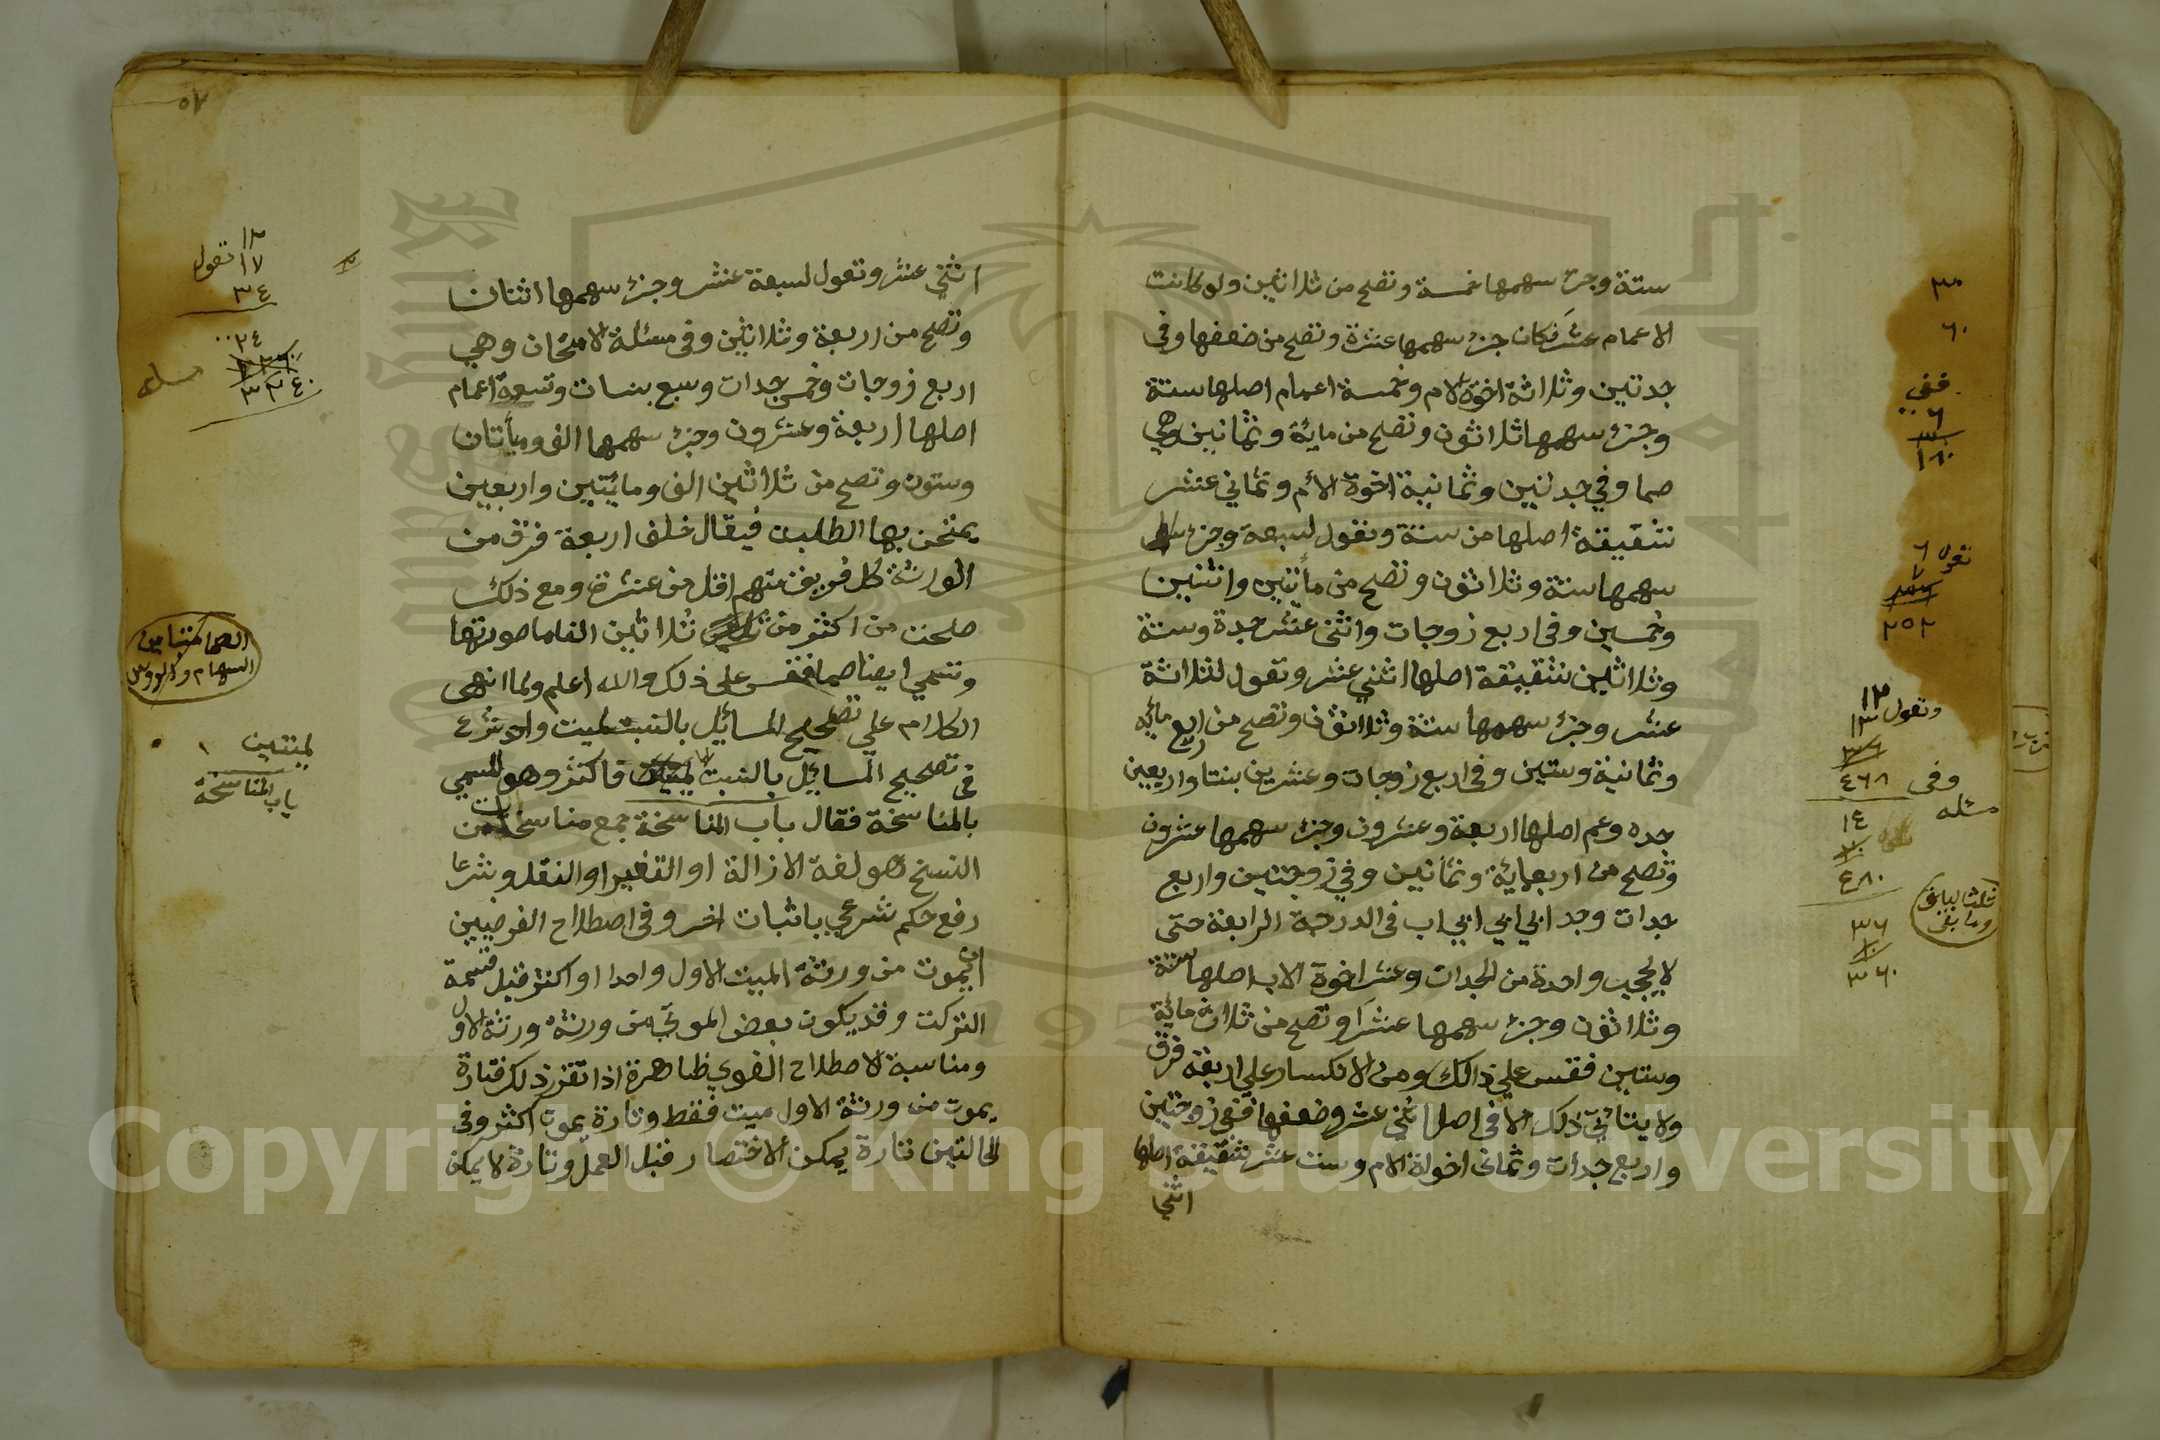 ستة وجزء سهمها خمسة وتصح من ثلاثين ولو كانت
الاعمام عشر فكان جزء سهمها عشرة وتصح من ضعفها وفي
جدتين وثلاثة اخوة لام وخمسة اعمام اصلها ستة
وجزء سهمها ثلاثون وتصح من ماية وثمانين وهي
صما وفي جدتين وثمانية اخوة لأم وثماني عشر
شقيقة اصلها من ستة وتعول لسبعة وجزء
سهمها ستة وثلاثون وتصح من مأتين واثنين
وخمسين وفي اربع زوجات واثنى عشر جدة وستة
وثلاثين شقيقة اصلها اثني عشر وتعول لثلاثة
عشر وجزء سهمها ستة وثلاثون وتصح من اربع مائه
وثمانية وستين وفي اربع زوجات وعشرين بنتا واربعين
جده وعم اصلها اربعة وعشرون وجزء سهمها عشرون
وتصح من اربعماية وثمانين وفي زوجتين واربع
جدات وجد ابي ابي ابي اب في الدرجة الرابعة حتى
لا يحجب واحدة من الجدات وعشر اخوة لاب اصلها ستة
وثلاثون وجزء سهمها عشرا وتصح من ثلاث مائة
وستين فقس علي ذالك ومن الانكسار علي اربعة فرق
ولا يتاتي ذلك الا في اصل اثني عشر وضعفها ففي زوجتين
واربع جدات وثماني اخوة لام وست عشر شقيقة اصلها
اثني
٣٠
٦٠
ففي
٦
٣٠
١٨٠
تعول ٦
٧
٣٦
٢٥٢
وتعول ١٢
١٣
٣٦
٤٦٨
وفي مسئله
٢٤
٢٠
٤٨٠
ثلث الباقي
وما بقي
٣٦
١٠
٣٦٠
٥٧
اثني عشر وتعول لسبعة عشر وجزء سهمها اثنان
وتصح من اربعة وثلاثين وفي مسئلة الامتحان وهي
اربع زوجات وخمس جدات وسبع بنات وتسعة اعمام
اصلها اربعة وعشرون وجزء سهمها الف ومأتان
وستون وتصح من ثلاثين الف ومائتين واربعين
يمتحن بها الطلبة فيقال خلف اربعة فرق من
الورثة كل فريق منهم اقل من عشرة ومع ذلك
صلحت من اكثر من ثلاثين الفا ما صورتها
وتسمي ايضا صما فقس علي ذلك والله اعلم ولما انهى
الكلام علي تصحيح المسائل بالنسبة لميت واحد شرع
في تصحيح المسائل بالنسبة لميتين فاكثر وهو المسمي
بالمناسخة فقال باب المناسخة جمع مناسخات من
النسخ هو لغة الازالة او التغير او النقل وشرعا
رفع حكم شرعي باثبات اخر وفي اصطلاح الفرضيين
ان يموت من ورثة الميت الاول واحدا او اكثر قبل قسمة
التركت وقد يكون بعض الموتي من ورثة ورثة الاول
ومناسبة الاصطلاح الغوي ظاهرة اذا تقرر ذلك فتارة
يموت من ورثة الاول ميت فقط وتارة يموت اكثر وفي
الحالتين تارة يمكن الاختصار قبل العمل وتارة لا يمكن
١٢
١٧ تعول
٣٤
٢٤
٣٠٢٤٠
الصما تباين
السهام والرووس
لميتين
باب المناسخة
Copyright © King Saud University